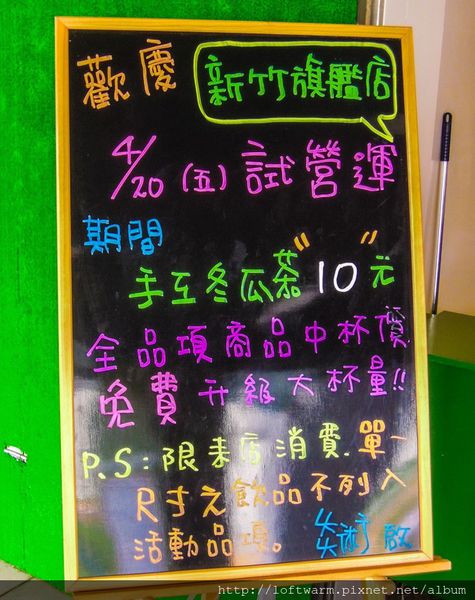 歡慶 新竹旗艦店
4/20 (五) 試營運
期間
手工冬瓜茶"10"元
全品項商品中杯價
免費升級大杯量!!
P.S:限來店消費.單一
尺寸之飲品不列入
活動品項。
http://loftwarm.pixnet.net/album